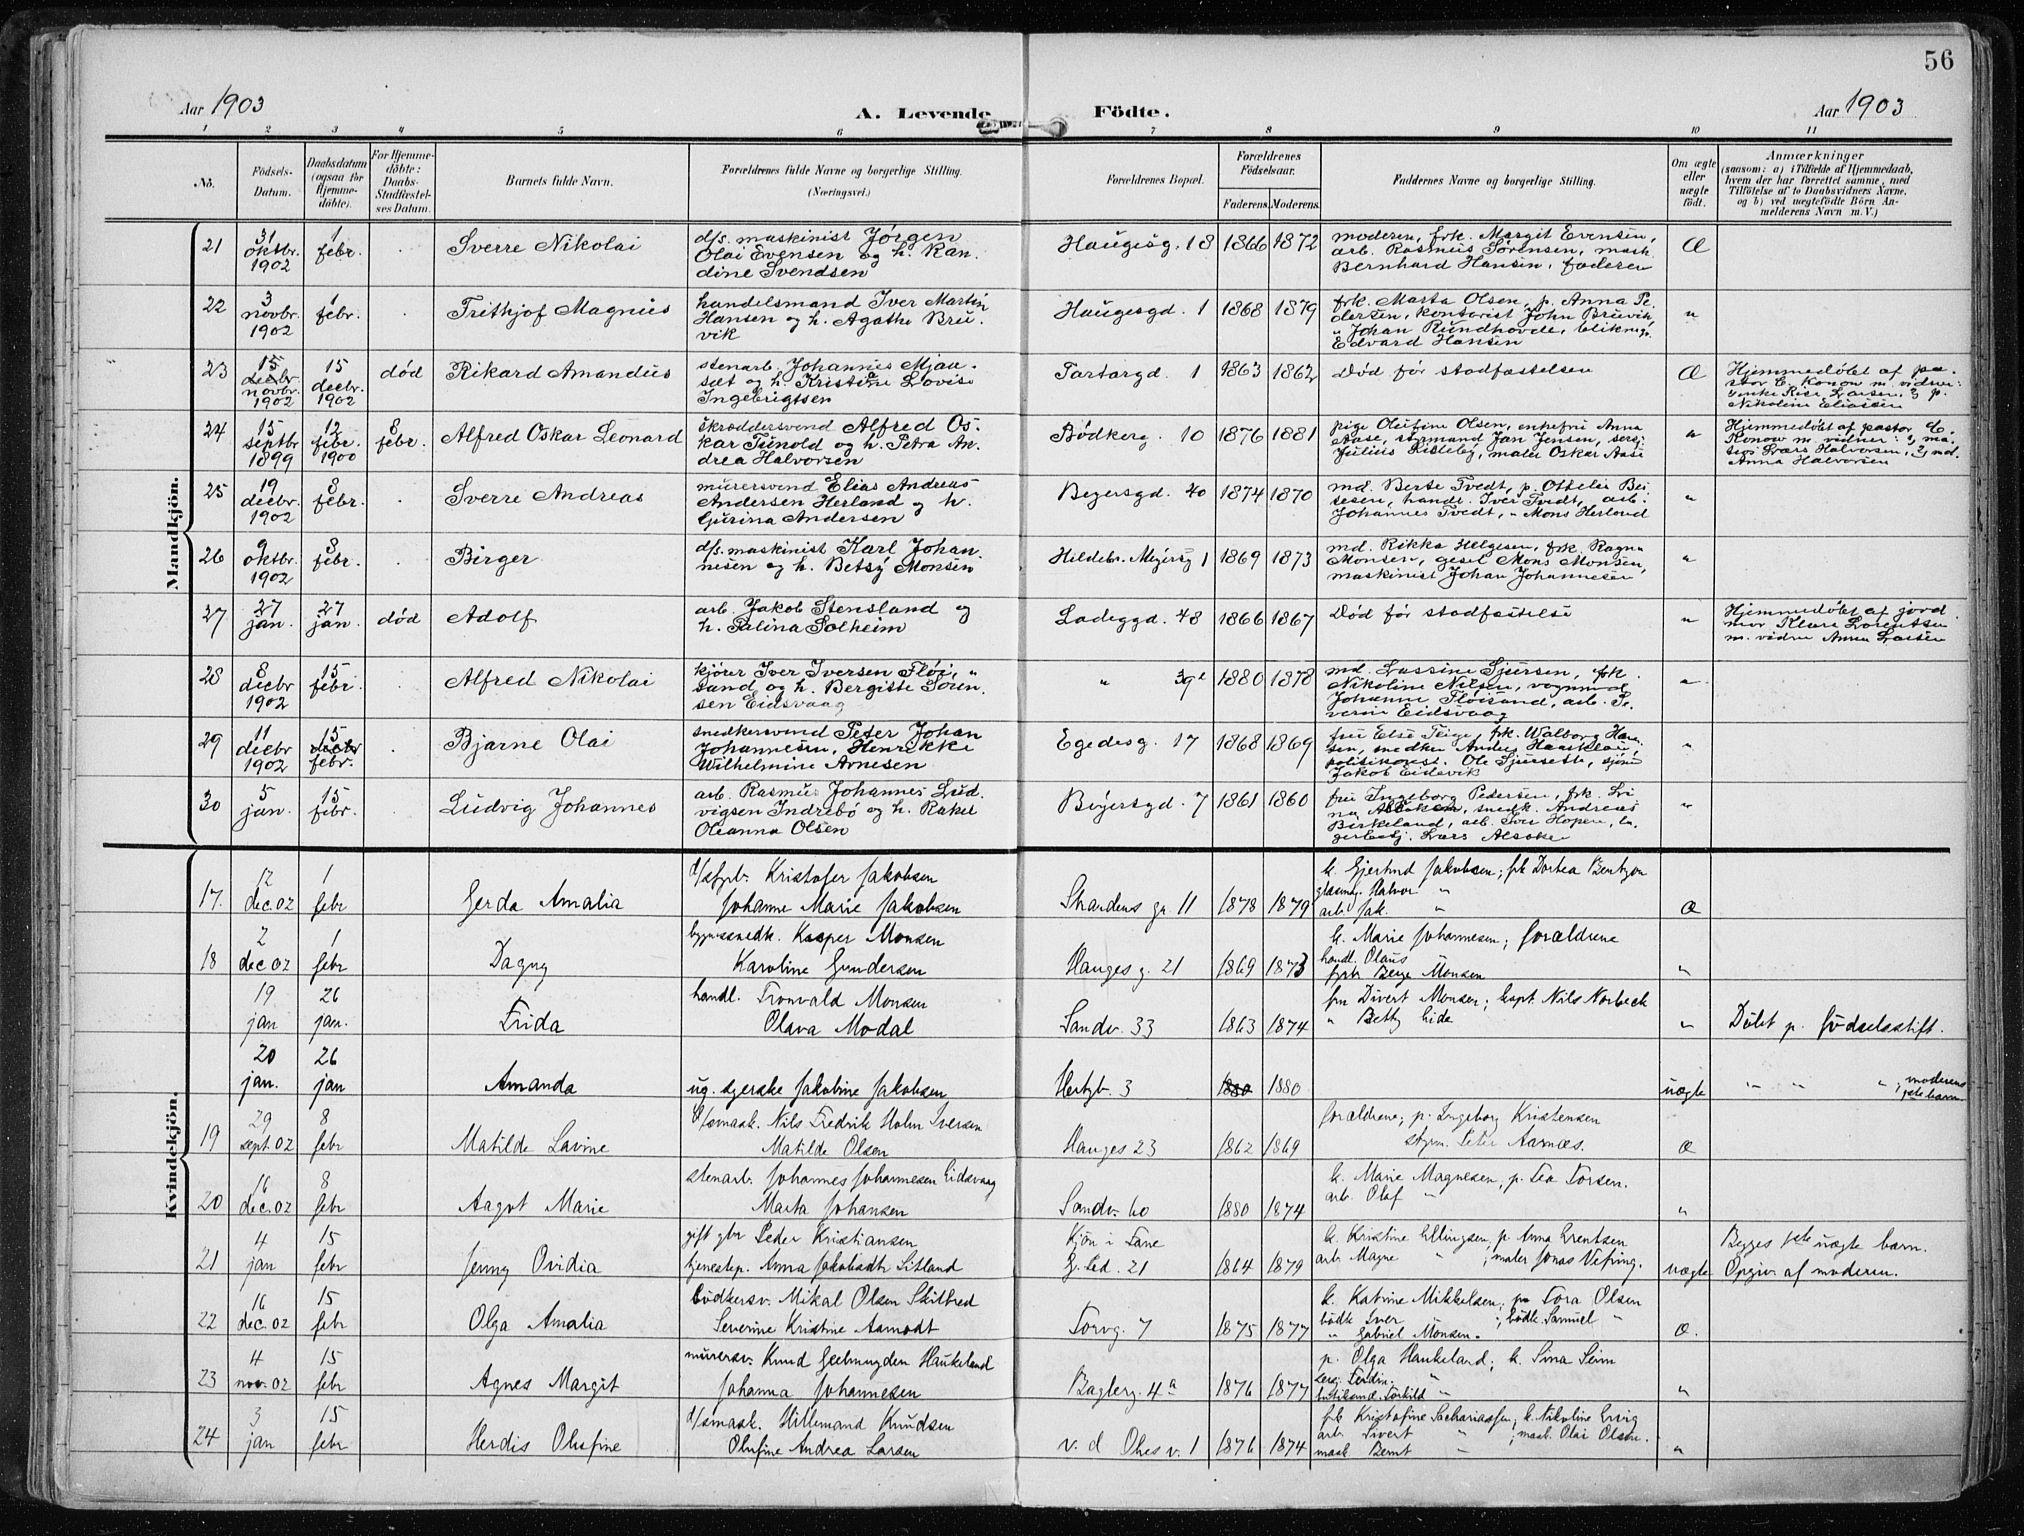 56
Aar 1903 A. Levende Födte. Aar 1903
1 2 3 4 5 6 7 8 9 10 11
No. Födsels-Datum. Daabsdatum (ogsaa for Hjemme-döbte). For Hjemme-döbte: Daabs-Stadfæstel-ses Datum. Barnets fulde Navn. Forældrenes fulde Navne og borgerlige Stilling. (Næringsvei.) Forældrenes Bopæl. Forældrenes Födselsaar. Faderens. Moderens. Faddernes Navne og borgerlige Stilling. Om ægte eller uægte födt. Anmærkninger (saasom: a) i Tilfælde af Hjemmedaab, hvem der har forrettet samme, med Tilföielse af to Daabsvidners Navne, og b) ved uægtefödte Börn An-melderens Navn m. V.)
Mandkjön.
21 31 oktbr. 1902 1 febr. Sverre Nikolai d/s. maskinist Jørgen Olai Evensen og h. Ran-dine Svendsen Haugesg. 18 1866 1872 moderen, frk. Margit Evensen, arb. Rasmus Sørensen, mask. Bernhard Hansen, faderen Æ
22 3 novbr. 1902 1 febr. Frithjof Magnus handelsmand Iver Martin Hansen og h. Agathe Bru-vik Haugesgd. 1 1868 1879 frk. Marta Olsen, p. Anna Pe-dersen, kontorist John Bruvik, " Johan Rundhovde, Edvard Hansen "
23 15 decbr. novbr. 1902 15 decbr. 1902 død Rikard Amandus stenarb. Johannes Mjan-sæt og h. Kristine Lovise Ingebrigtsen Tartargd. 1 1863 1862 Død før stadfæstelsen Æ Hjemmedøbt af pa-stor C. Konow m. vidner: enke Rise Larsen, p. Nikoline Eliassen
24 15 septbr 1899 12 febr. 1900 8 febr. Alfred Oskar Leonard skræddersvend Alfred Os-kar Tunold og h. Petra An-drea Halvorsen Bødkerg. 10 1876 1881 pige Olufine Olsen, enkefru Anna Aase, sømand Jan Jensen, sers. Julius Kideleg, maler Oskar Aase " Hjemmedøbt af pastor C. Konow m. vidner: Lars Halvorsen, 2) md. Anna Halvorsen
25 19 decbr. 1902 8 febr. Sverre Andreas murersvend Elias Andreas Andersen Herland og h. Gurina Andersen Beyersgd. 40 1874 1870 md. Berte Tvedt, p. Ottelie handl. Iver Tvedt, arb. Johannes Tvedt, " Mons Herland "
26 9 oktbr. 1902 8 febr. Birger d/s. maskinist Karl Johan-nesen og h. Betsy Monsen Hildebr. Meyersg 1 1869 1873 md. Rikka Helgesen, frk. Ragna Monsen, gesel Mons Monsen, maskinist Johan Johannesen "
27 27 jan. 27 jan. død Adolf arb. Jakob Stensland og h. Palina Solheim Ladeggd. 48 1866 1867 Død før stadfæstelse " Hjemmedøbt af jord mor Klara Lorentsen m. vidne Anna Larsen
28 8 decbr 1902 15 febr. Alfred Nikolai kjører Iver Iversen Fløi-sand og h. Bergitte Søren-sen Eidsvaag " 39 1880 1878 md. Lassine Sjursen, frk. Nikoline Nilsen, vognmd. Johannes Fløisand, arb. Se-verin Eidsvaag "
29 11 decbr 1902 15 decbr febr. Bjarne Olai snedkersvend Peter Johan Johannesen, Henrikke Wilhelmine Arnesen Egedesg. 17 1868 1869 fru Else Teige, frk. Walborg Han-sen, snedker Anders politikonst. Ole Sjursett, Jakob Eidsvik "
30 5 jan. 15 febr. Ludvig Johannes arb. Rasmus Johannes Lud-vigsen Indrebø og h. Rakel Oleanna Olsen Beyersgd. 7 1861 1860 fru Ingeborg Pedersen, frk. Li-na snedk. Andreas Birkeland, arb. Iver Hopen, Lars Alsaker "
Kvindekjön.
17. 12 dec. 02 1 febr Gerda Amalia d/sfyrb. Kristofer Jakobsen Johanne Marie Jakobsen Skardens gr. 11 1878 1879 k. Gjertrud Jakobsen; frk Dortea Bentzon glasmg. Halvor " arb. Jak. " Æ
18 2 dec 02 1 febr Dagny bygn.snedk. Kasper Monsen Karoline Gundersen Hauges g. 21 1869 1873 k. Marie Johannesen; forældrene handl. Olaus fyrb Berge Monsen "
19 jan 26 jan. Frida handl. Tronvald Monsen Olava Modal Sandv. 33 1863 1874 fru Divert Monsen; kapt. Nils Norbeck " Betty Eide " Døbt p. fødselsstift.
20 jan. 26 jan Amanda ug. syerske Jakobine Jakobsen Hertzb. 3 1880 1880 uægte " " " ; moderens 1ste barn
19 29 sept. 02 8 febr Matilde Lavine d/smask. Nils Fredrik Holm Iversen Matilde Olsen Hauges 23 1862 1869 forældrene; p. Ingeborg Kristensen stym. Peter Aarnæs. Æ
20 16 dec. 02 8 febr Aagot Marie stenarb. Johannes Johannesen Eidsvaag Marta Johansen Sandv. 60 1880 1874 k. Marie Magnesen, p. Lea Torsen. arb. Olaf " "
21 4 jan 15 febr Jenny Ovidia gift gbr Peder Kristiansen tjenestep. Anna Jakobsdtr Sitland Kjøn i Fane G. Led. 21 1864 1879 k. Kristine Ellingsen, p Anna Erentsen arb. Magne " ; maler Jonas Vefring. uægte Begges 1ste uægte barn. Opgiv. af moderen.
22 16 dec. 02 15 febr Olga Amalia bødkersv. Mikal Olsen Skitbred Severine Kristine Aamodt Torvg. 7 1875 1877 k. Katrine Mikkelsen; p Tora Olsen bødk Iver " ; bødk. Samuel " " Gabriel Monsen. Æ.
23 4 nov. 02 15 febr Agnes Margit murersv. Knud Haukeland Johanna Johannesen Baglerg. 4a 1876 1877 p. Olga Haukeland; k. Sina Seim serg. Ferdin. " Torkild " "
24 3 jan 15 febr Herdis Olufine d/smask. Hillemand Knudsen Olufine Andrea Larsen v. d Ohes v. 1 1876 1874 frk Kristofine Sachariassen; k. Nikoline Ervig arb. Sivert " ; mask. Olai Olsen. mask Bernt " "